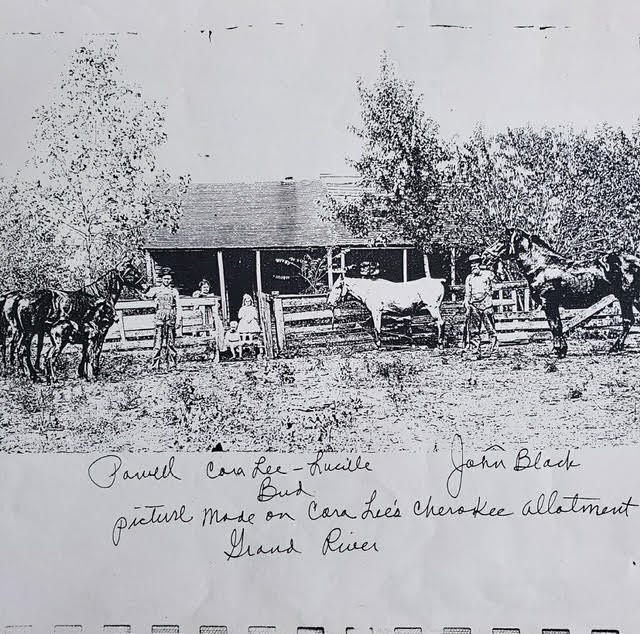 Powell Cora Lee - Lucille John Black
Bud
picture made on Cora Lee's Cherokee allotment
Grand River